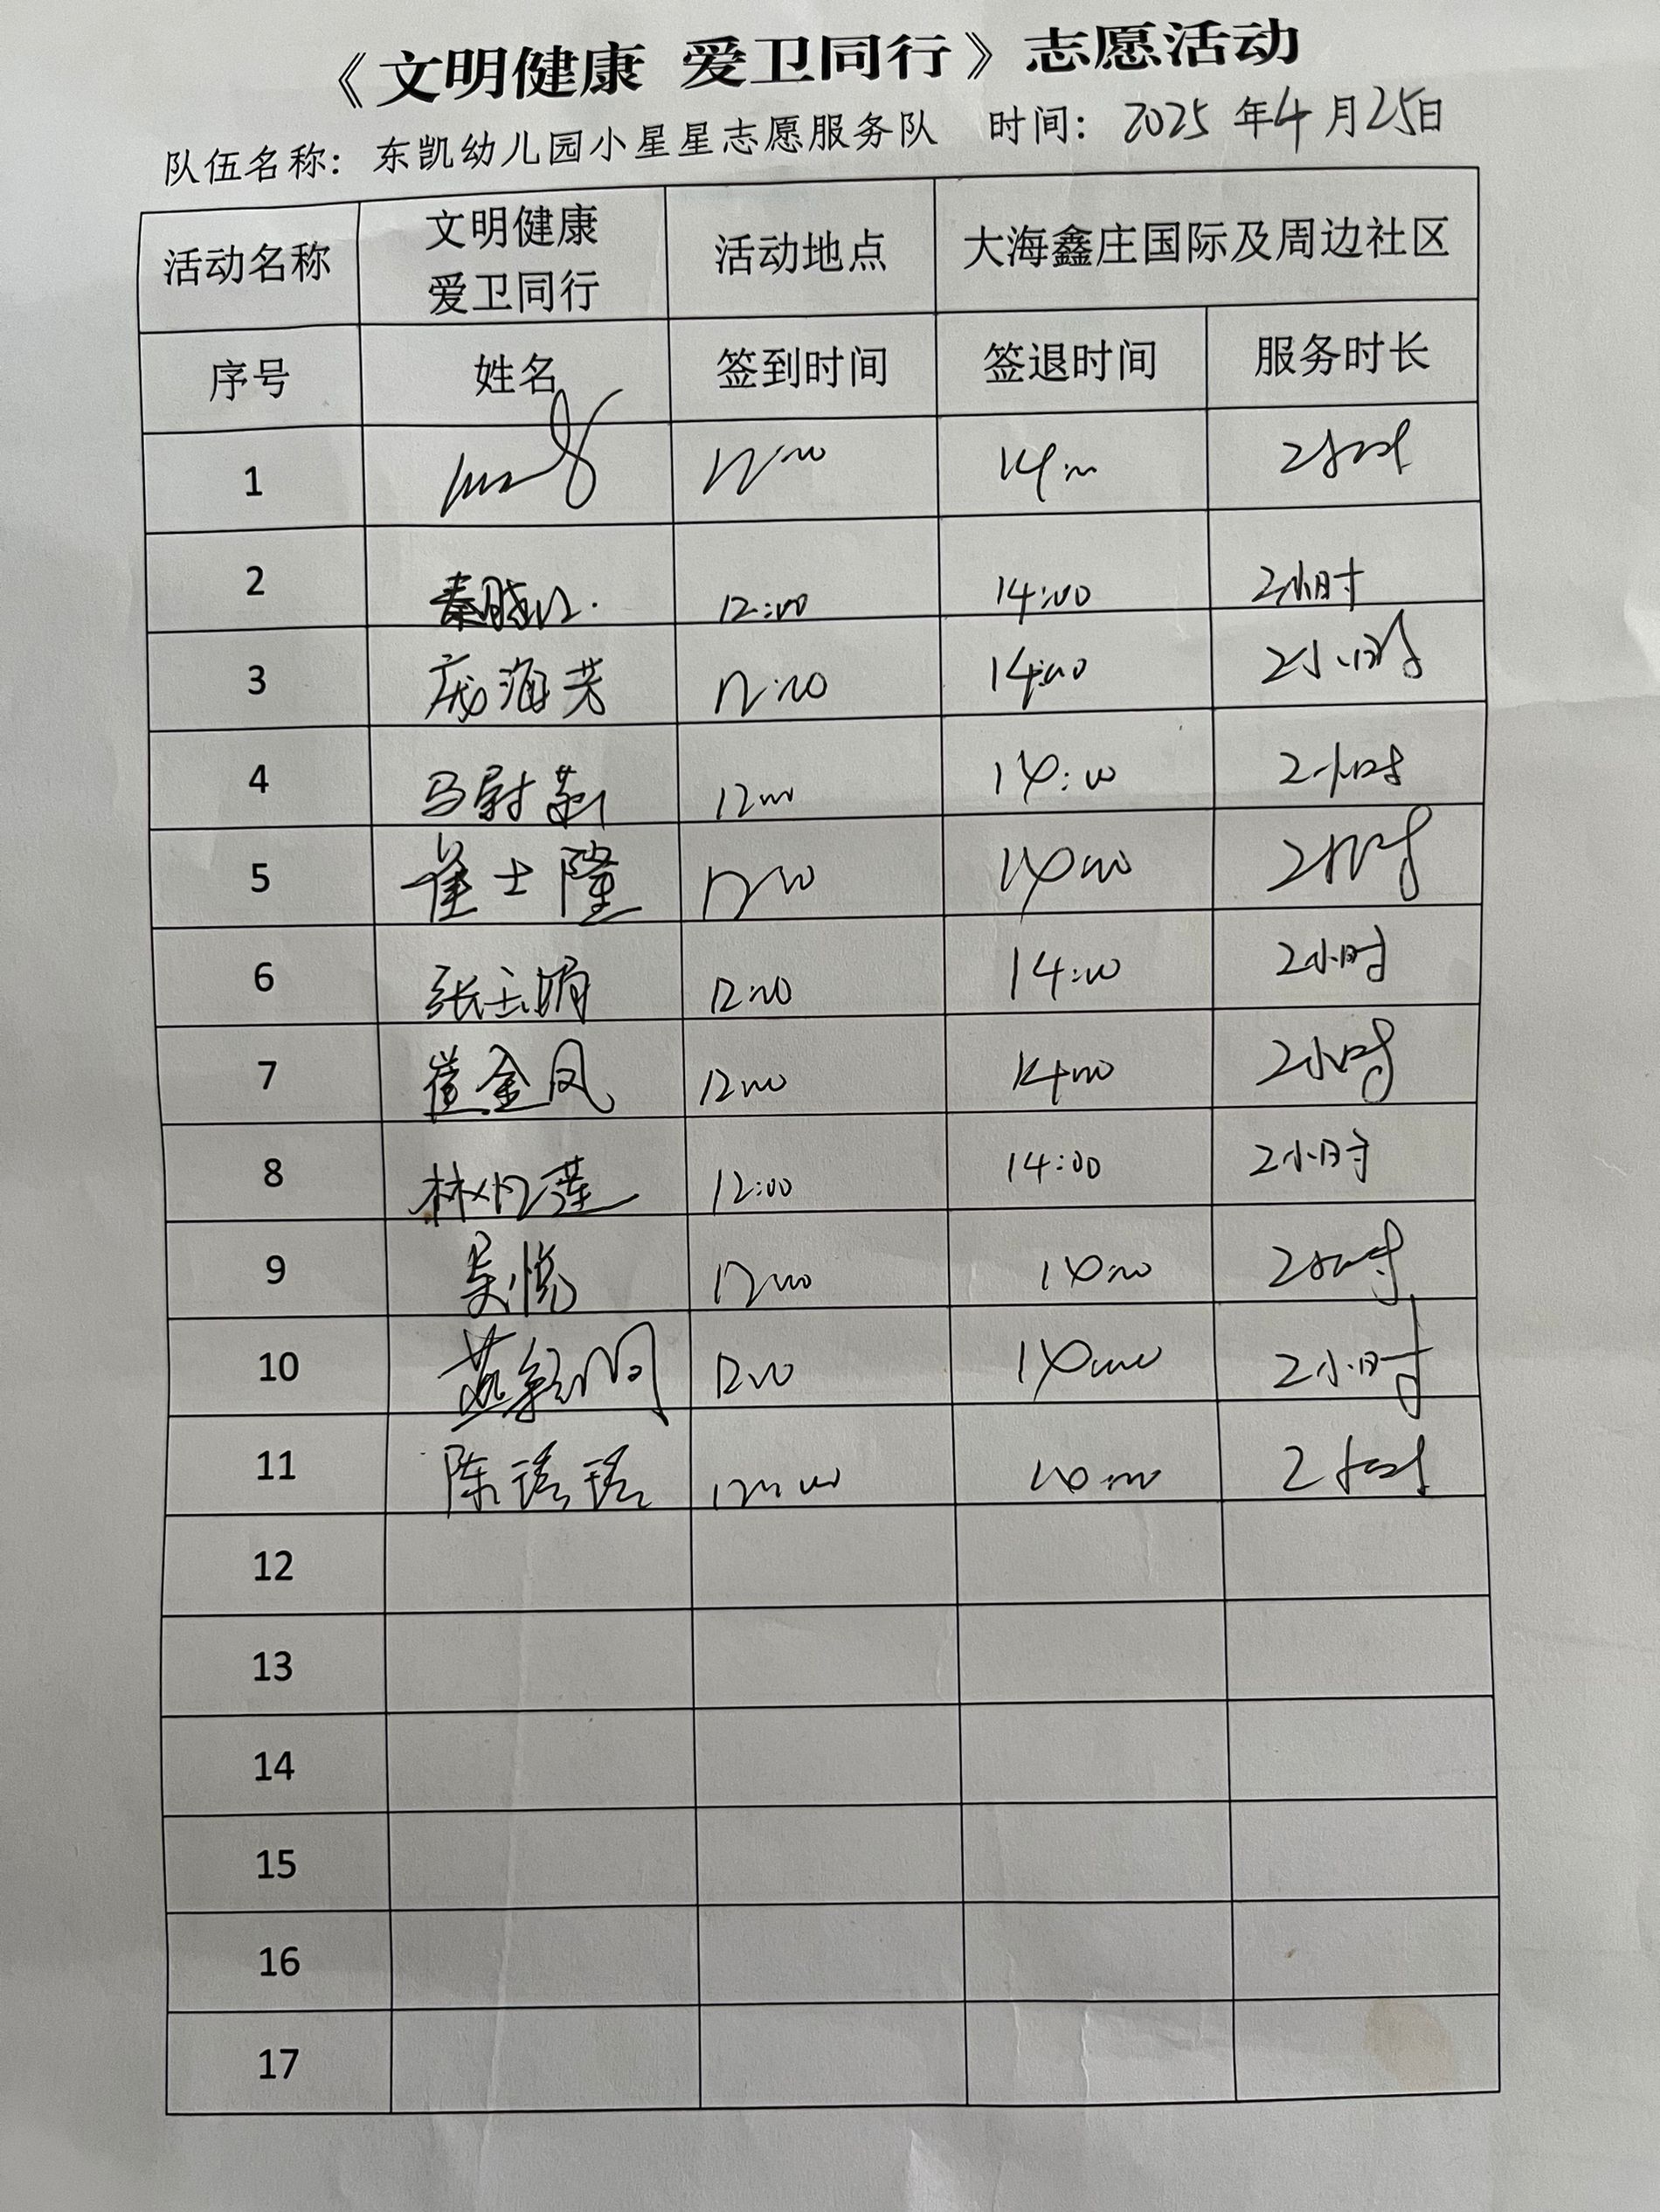 《文明健康 爱卫同行》志愿活动
队伍名称：东凯幼儿园小星星志愿服务队 时间：2025年4月25日
活动名称 文明健康 爱卫同行 活动地点 大海鑫庄国际及周边社区
序号 姓名 签到时间 签退时间 服务时长
1 12:00 14:00 2小时
2 秦晓 12:00 14:00 2小时
3 庞海芳 12:00 14:00 2小时
4 马尉 12:00 14:00 2小时
5 崔士隆 12:00 14:00 2小时
6 张玉娟 12:00 14:00 2小时
7 崔金凤 12:00 14:00 2小时
8 林 莲 12:00 14:00 2小时
9 吴悦 12:00 14:00 2小时
10 12:00 14:00 2小时
11 陈瑶瑶 12:00 14:00 2小时
12
13
14
15
16
17